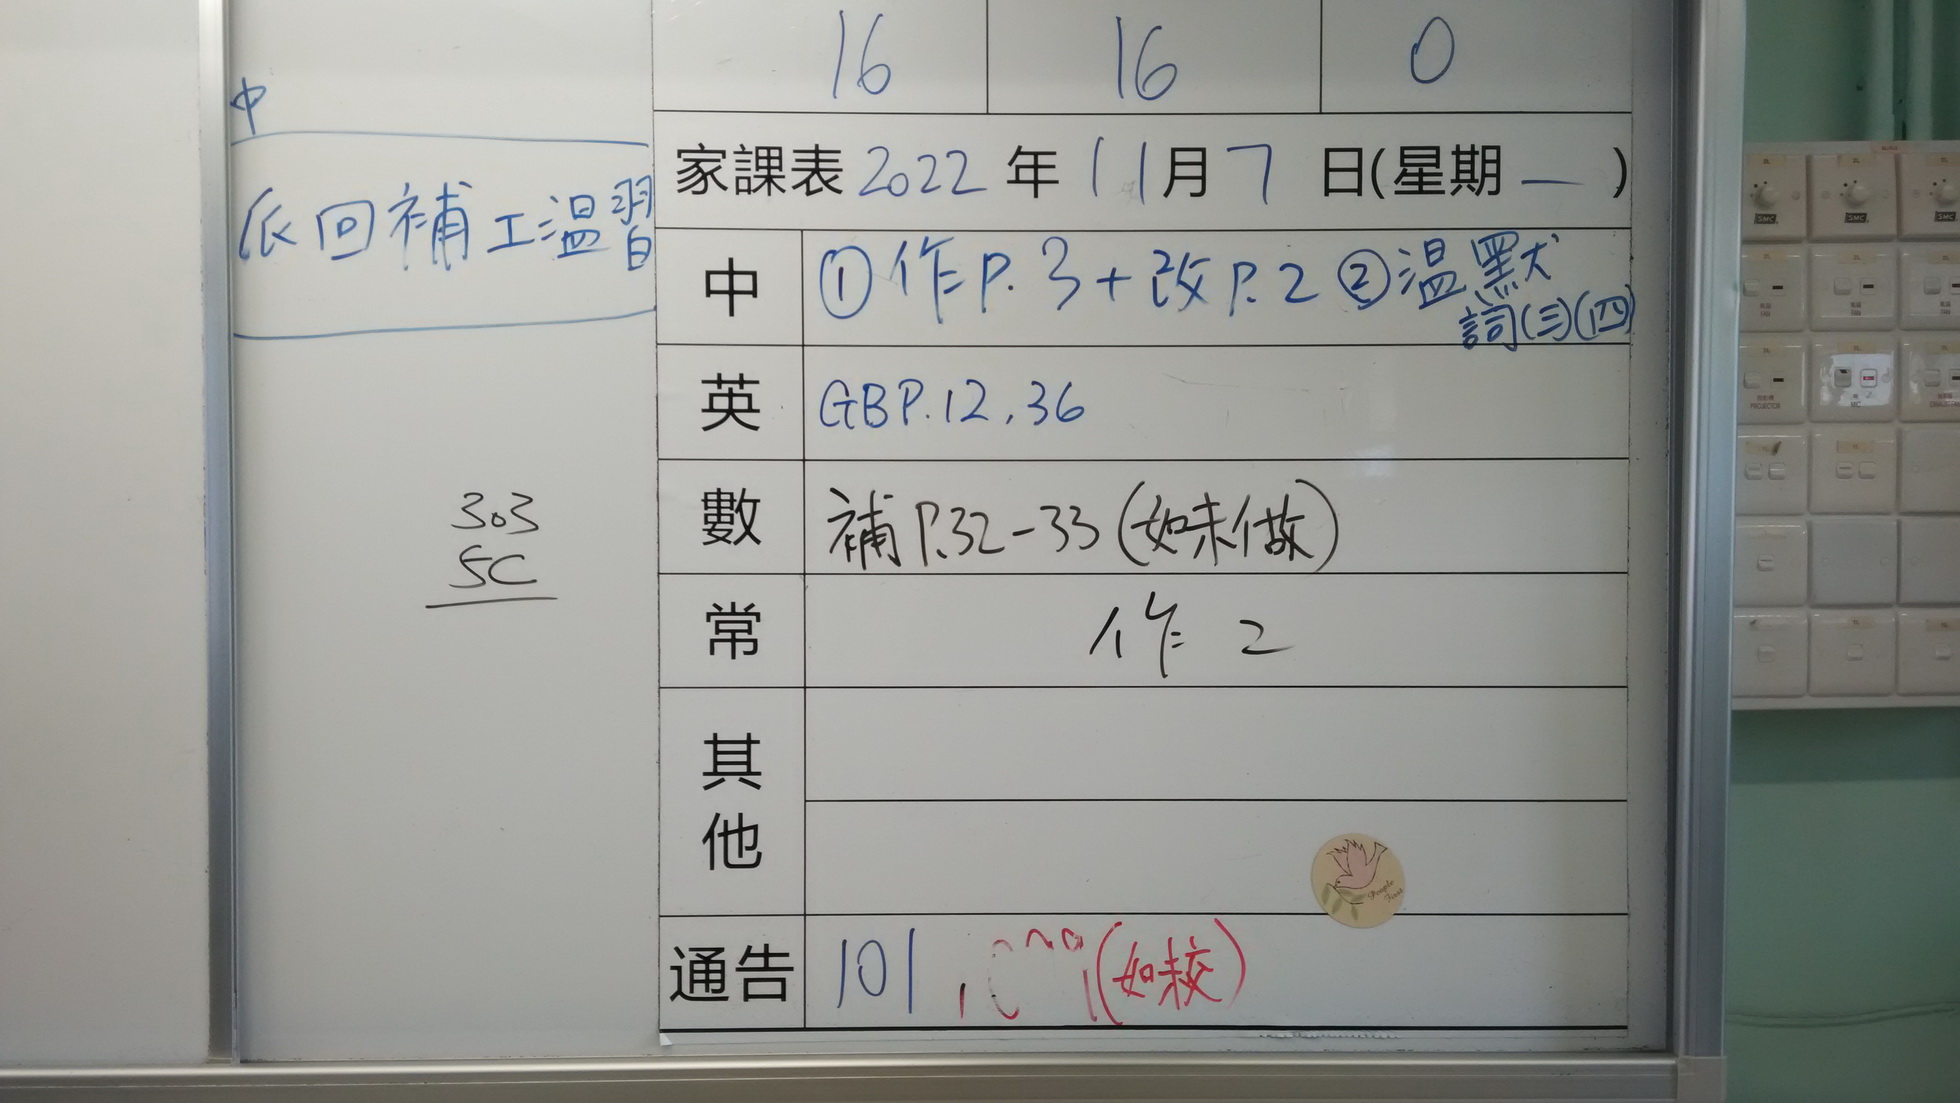 16 16 0
中
派回補工溫習
家課表 2022 年 11 月 7 日(星期 一 )
中 ①作P.3+改P.2 ②溫默
詞(三)(四)
英 GBP.12,36
數 補P.32-33(如未做)
303
5C
常 作 2
其
他
通告 101, (如未交)